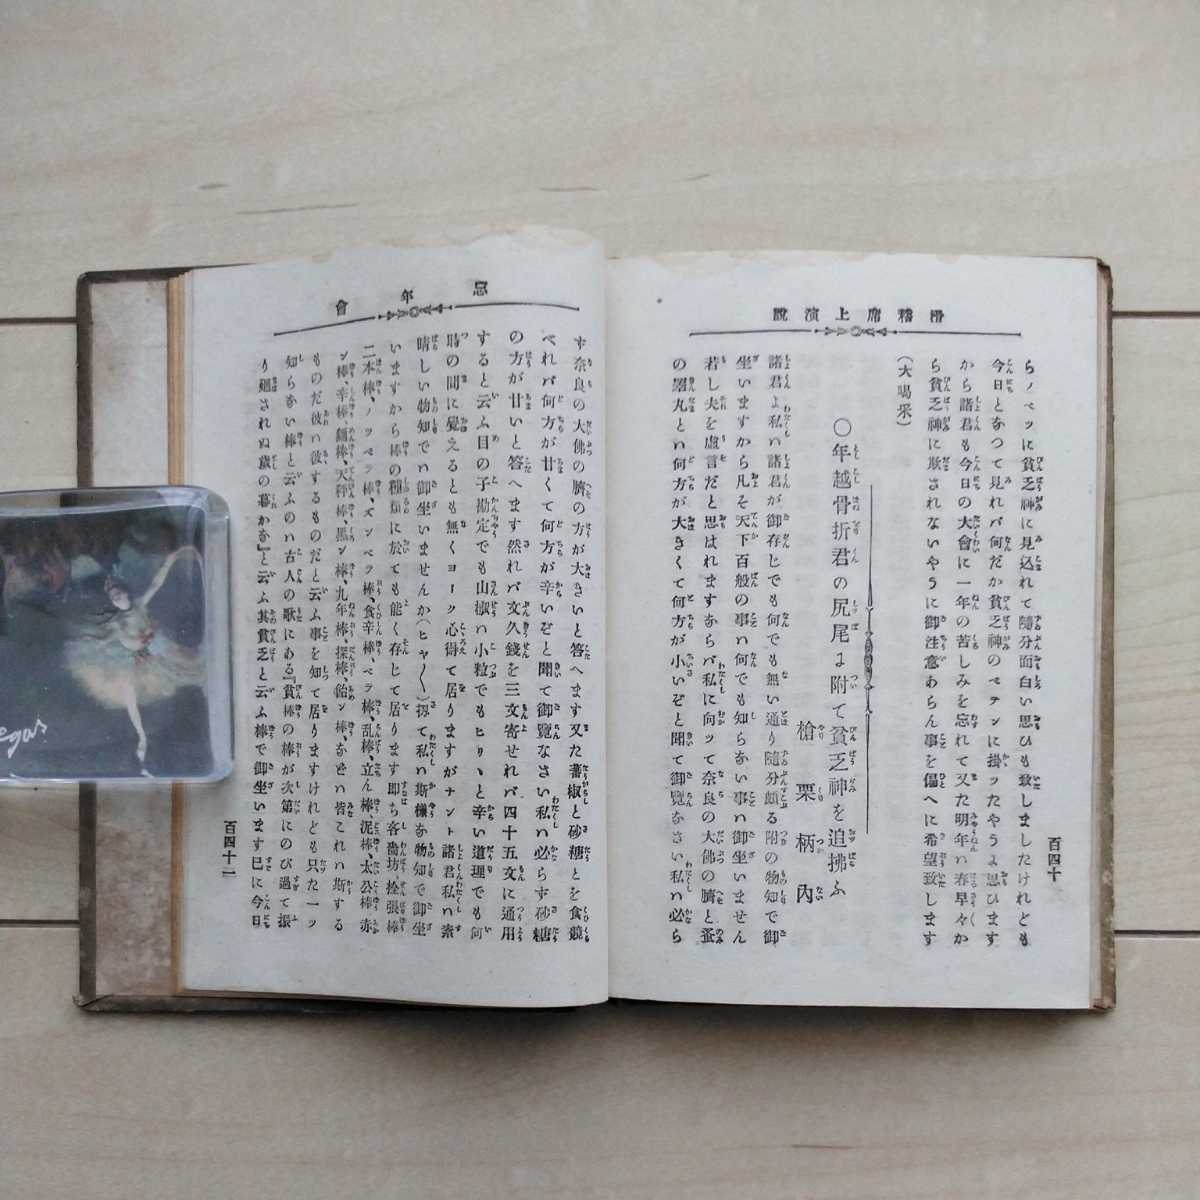 滑稽席上演說
らノベツに貧乏神に見込れて隨分面白い思ひも致しましたけれども
今日となつて見れバ何だか貧乏神のペテンに掛ッたやうよ思ひます
から諸君も今日の大會に一年の苦しみを忘れて又た明年ハ春早々か
ら貧乏神に欺されないやうに御注意あらん事を偏へに希望致します
(大喝采)
〇年越骨折君の尻尾よ附て貧乏神を追拂ふ
槍栗柄內
諸君よ私ハ諸君が御存じでも何でも無い通り隨分頗る附の物知で御
坐いますから凡そ天下百般の事ハ何でも知らない事ハ御坐いません
若し夫を虛言だと思はれますならバ私に向ッて奈良の大佛の臍と蚤
の睾丸とハ何方が大きくて何方が小いぞと聞て御覽なさい私ハ必ら
百四十
忘年會
す奈良の大佛の臍の方が大さいと答へます又た蕃椒と砂糖とを食競
べれバ何方が甘くて何方が辛いぞと聞て御覽なさい私ハ必らず砂糖
の方が甘いと答へます然れバ文久錢を三文寄せれバ四十五文に通用
すると云ふ目の子勘定でも山椒ハ小粒でもヒリヽと辛い道理でも何
時の間に覺えるとも無くヨーク心得て居りますがナント諸君私ハ素
晴しい物知でハ御坐いませんか(ヒヤ〱)扨て私ハ斯樣な物知で御坐
いますから棒の種類に於ても能く存じて居ります即ち客嗇坊、拴張棒
二本棒、ノッペラ棒、ズンベラ棒、食辛棒、ベラ棒、乱棒、立ん棒、泥棒、太公棒、赤
ン棒、辛棒、麺棒、天秤棒、黒ン棒、九年棒、探棒、飴ん棒、なぞハ皆これハ斯する
ものだ彼ハ彼するものだと云ふ事を知て居りますけれども只た一ッ
知らない棒と云ふのハ古人の歌にある『貧棒の棒が次第にのび過て振
り廻されぬ歳の暮かな』と云ふ其貧乏と云ふ棒で御坐います已に今日
百四十一